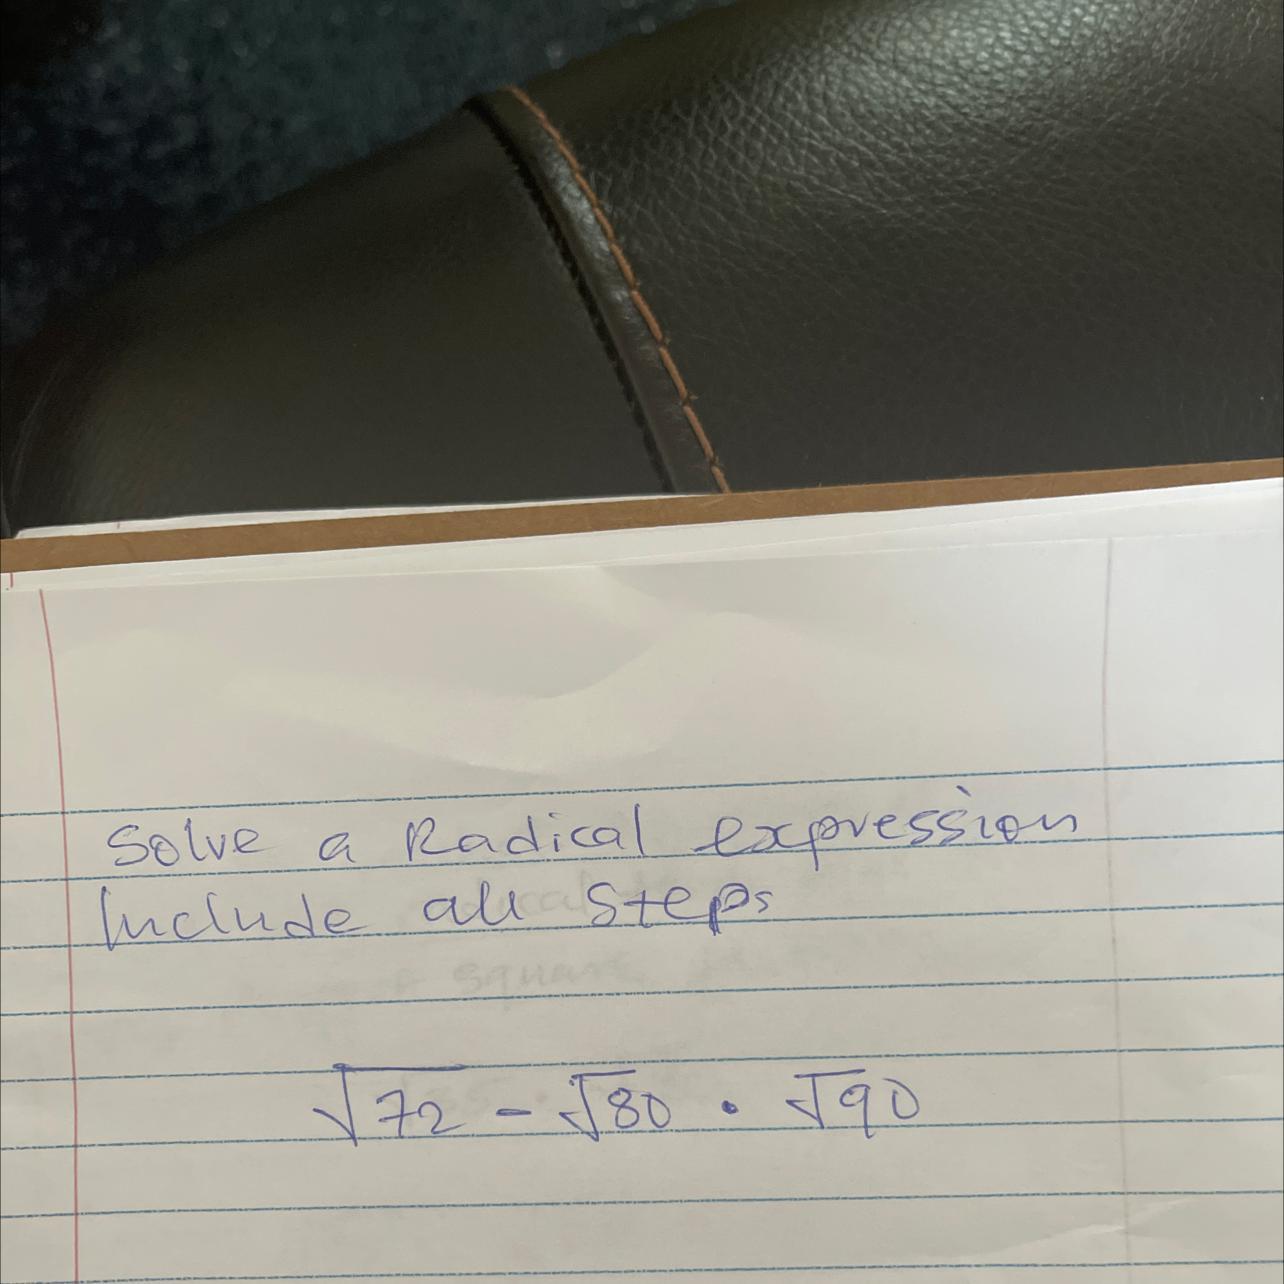 Solve a Radical expression
Include all steps
√72 - √80 • √90